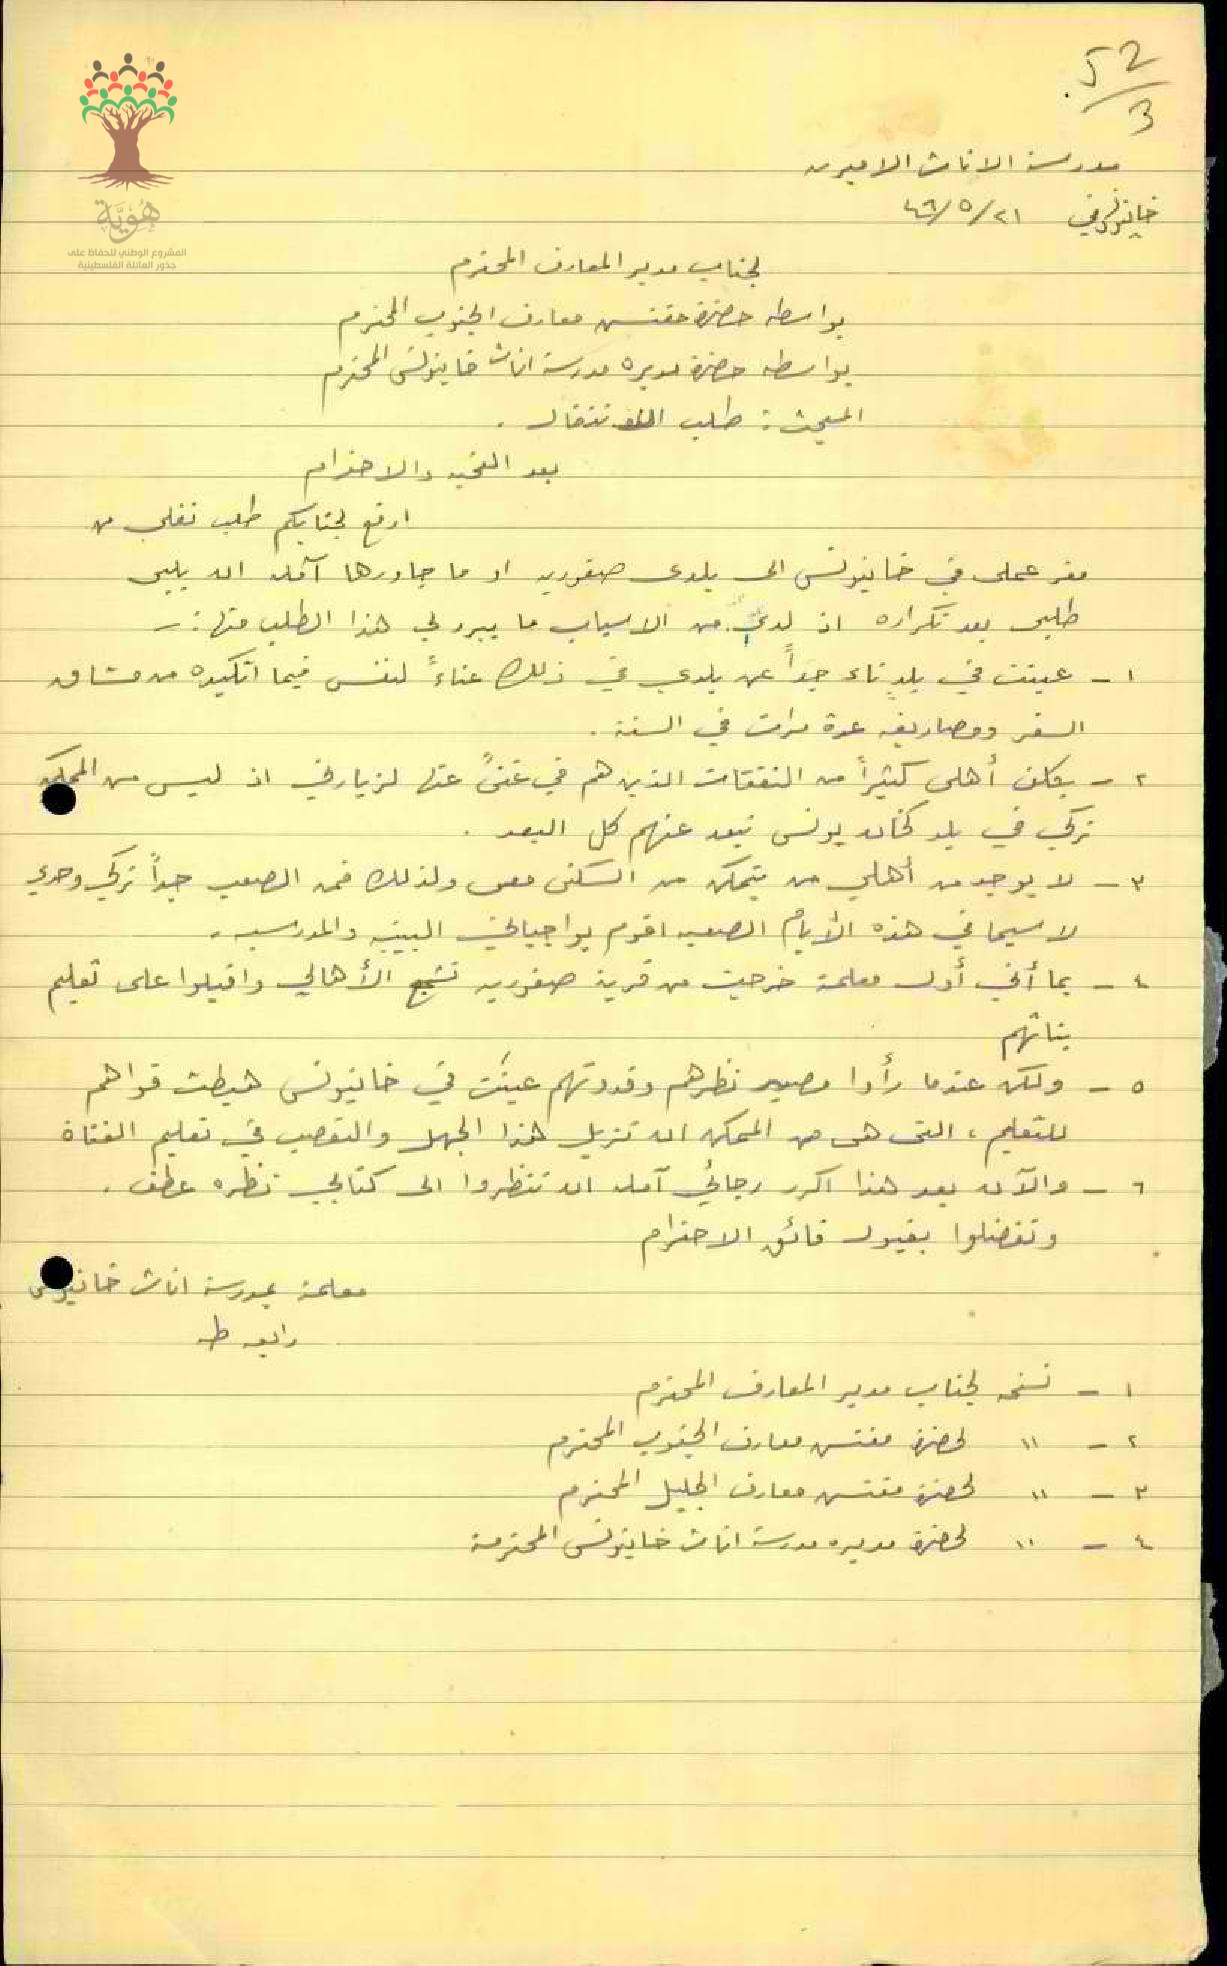 52
3
هُوِيَّة
المشروع الوطني للحفاظ على
جذور العائلة الفلسطينية
مدرسة الاناث الاميريه
خانيونس في ٢١/٥/٤٦
لجناب مدير المعارف المحترم
بواسطه حضرة مفتش معارف الجنوب المحترم
بواسطه حضرة مديره مدرسة اناث خانيونس المحترم
المبحث : طلب انتقال .
بعد التحيه والاحترام
ارفع لجنابكم طلب نقلي من
مقر عملي في خانيونس الى بلدي صفوريه او ما جاورها آمله ان يلبى
طلبي بعد تكراره اذ لدي من الاسباب ما يبرر لي هذا الطلب منها :ـ
١ ـ عينت في بلد ناء جداً عن بلدي في ذلك عناءً لنفسي فيما اتكبده من مشاق
السفر ومصاريفه عدة مرات في السنة .
٢ ـ يكلف أهلي كثيراً من النفقات الذين هم في غنىً عنها لزيارتي اذ ليس من الممكن
تركي في بلد كخان يونس تبعد عنهم كل البعد .
٣ ـ لا يوجد من أهلي من يتمكن من السكنى معي ولذلك فمن الصعب جداً تركي وحدي
لا سيما في هذه الأيام الصعبه اقوم بواجباتي البيتيه والمدرسيه .
٤ ـ بما أني أول معلمة خرجت من قرية صفوريه تشجع الأهالي واقبلوا على تعليم
بناتهم
٥ ـ ولكن عندما رأوا مصير نظرهم وقدوتهم عينت في خانيونس هبطت قواهم
للتعليم ، التي هي من الممكن ان تزيل هذا الجهل والتعصب في تعليم الفتاة
٦ ـ والآن بعد هذا اكرر رجائي آمله ان تنظروا الى كتابي نظره عطف .
وتفضلوا بقبول فائق الاحترام
معلمة بمدرسة اناث خانيونس
رابعه طه
١ ـ نسخه لجناب مدير المعارف المحترم
٢ ـ " لحضرة مفتش معارف الجنوب المحترم
٣ ـ " لحضرة مفتش معارف الجليل المحترم
٤ ـ " لحضرة مديره مدرسة اناث خانيونس المحترمة